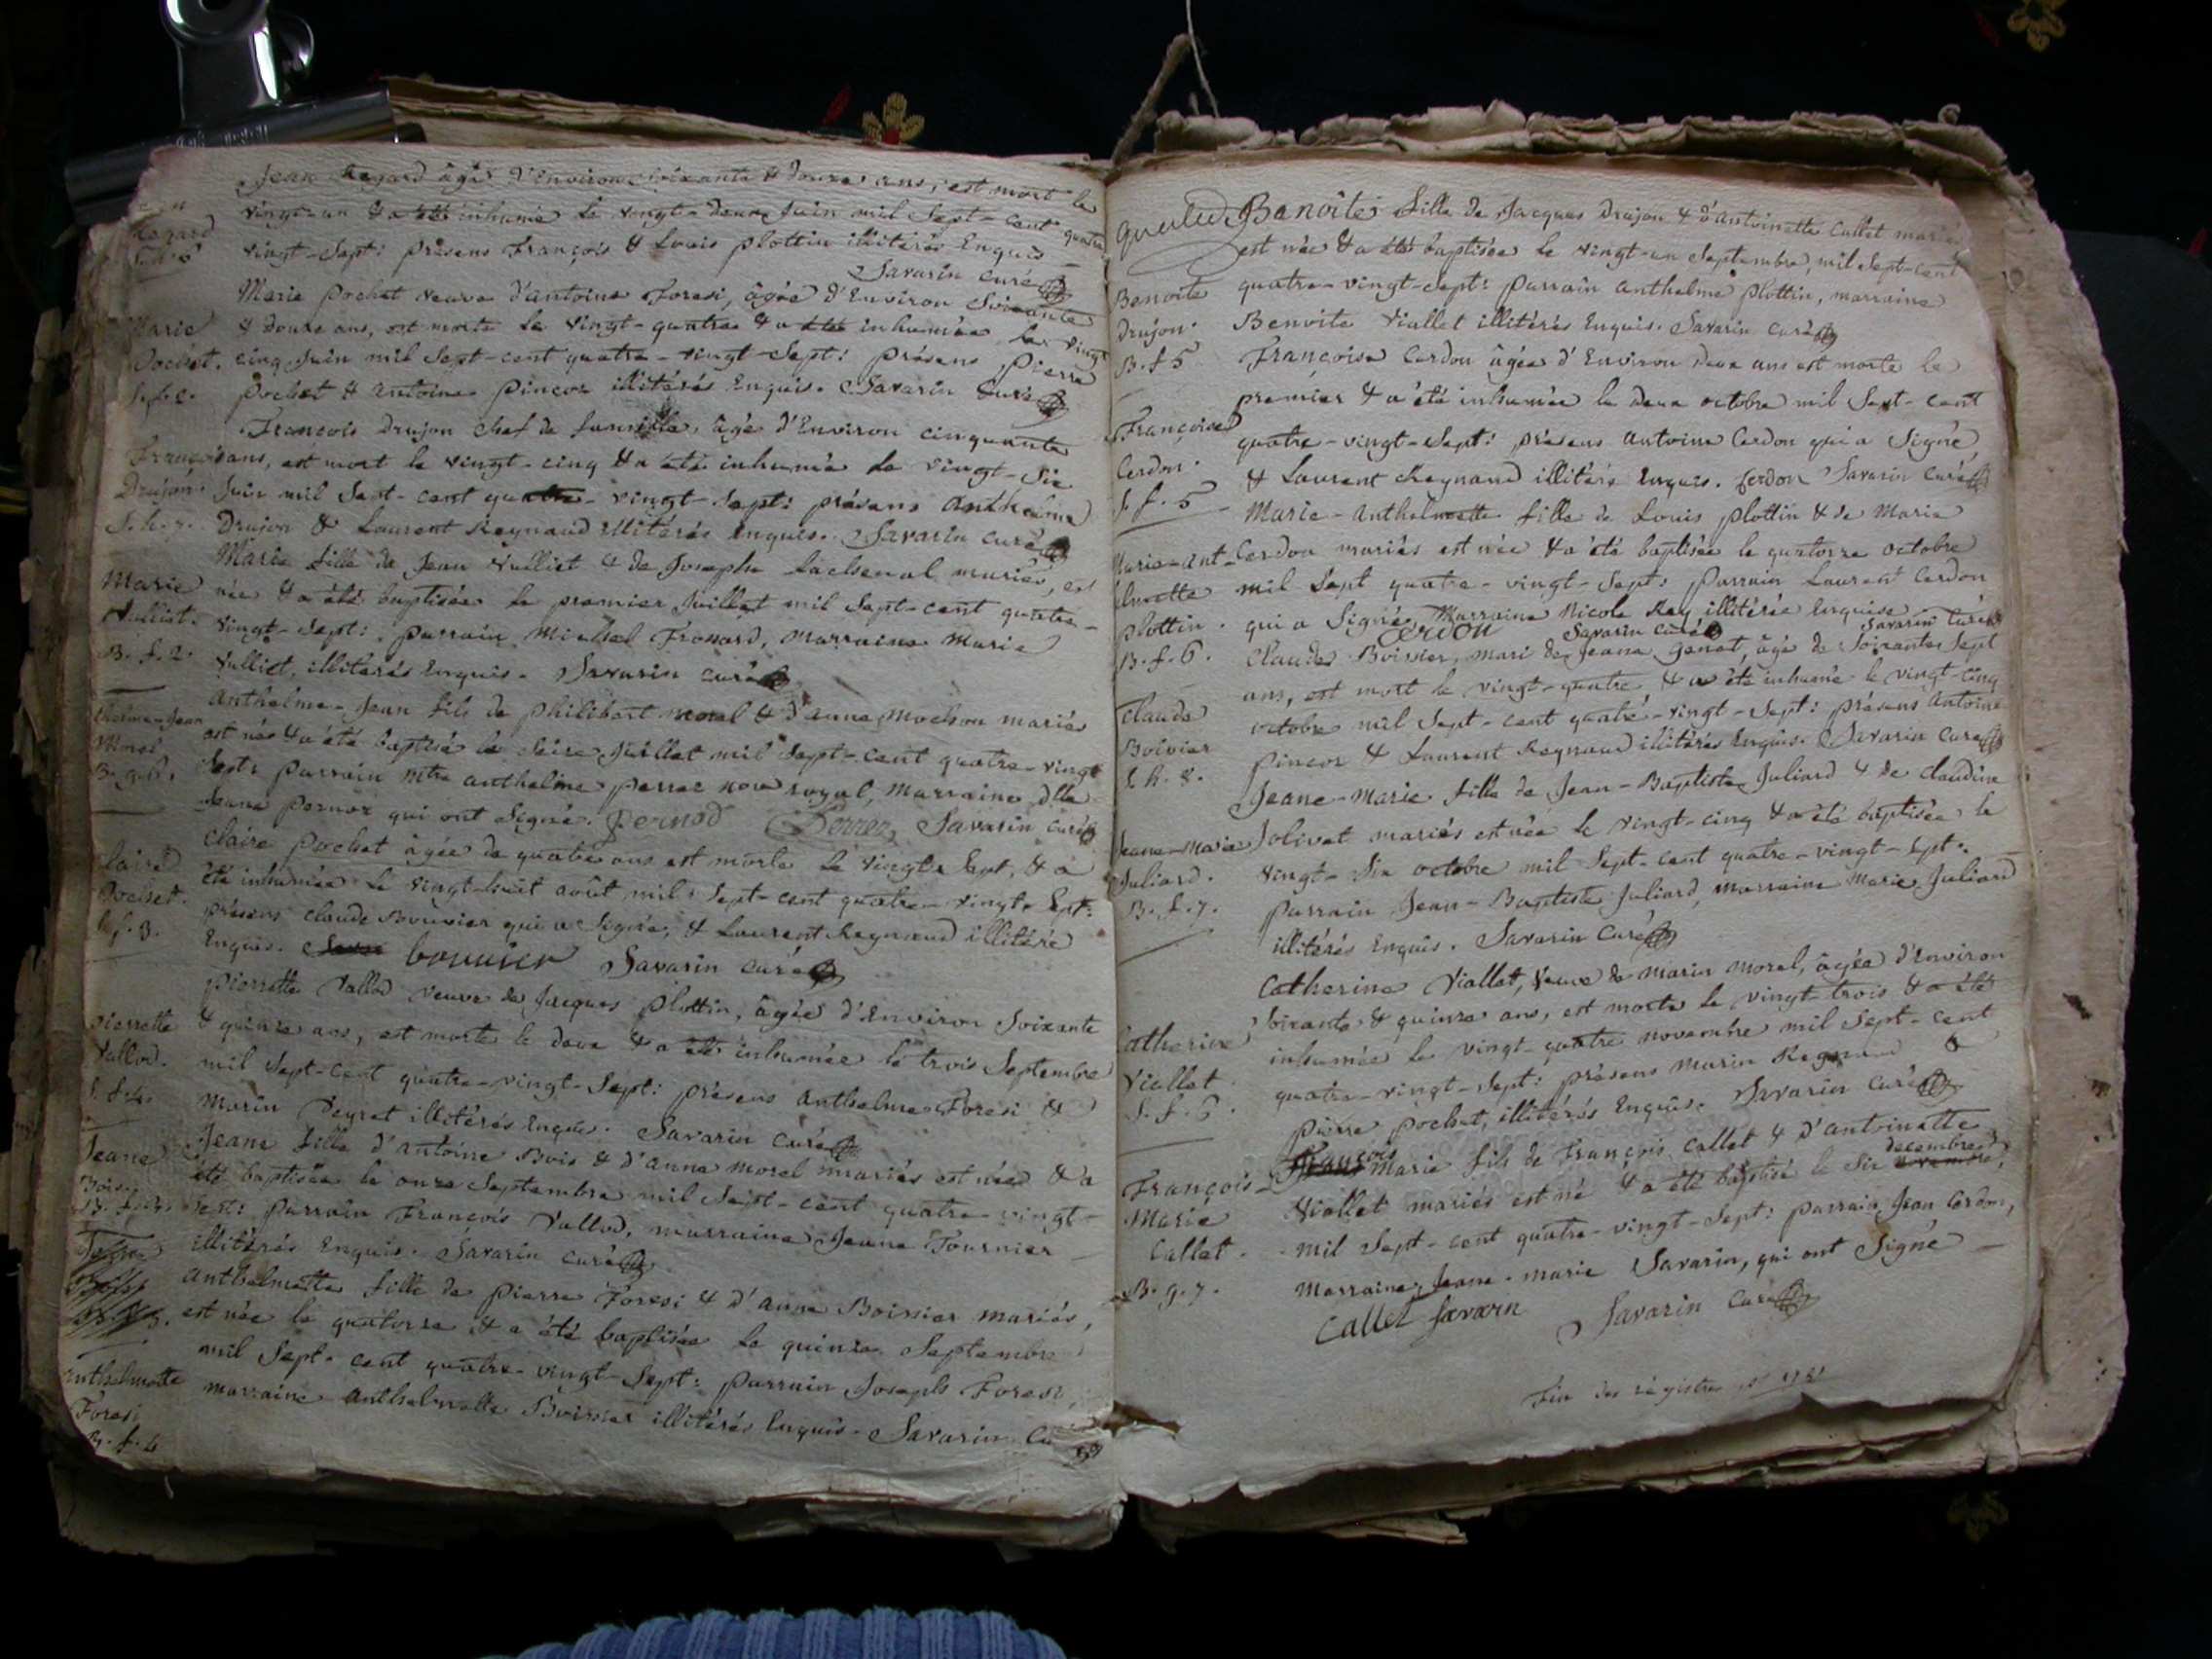 Jean Regard âgé d'environ soixante & douze ans, est mort le
vingt-un & a été inhumé le vingt-deux juin mil sept-cent quatre
vingt-sept: présens François & Louis plottin illitérés enquis
Savarin curé
Regard
Marie pochet veuve d'antoine Foresi, âgée d'environ soixante
& douze ans, est morte le vingt-quatre & a été inhumée le vingt
cinq juin mil sept-cent quatre-vingt-sept: présens pierre
pochet & antoine pincor illitérés enquis. Savarin curé
Marie
pochet.
François Drujon chef de famille, âgé d'environ cinquante
ans, est mort le vingt-cinq & a été inhumé le vingt-six
juin mil sept-cent quatre-vingt-sept: présens anthelme
Drujon & Laurent Reynaud illitérés enquis. Savarin curé
François
Drujon.
S. h. 7.
Marie fille de Jean Vulliet & de Josephe Lachenal mariés, est
née & a été baptisée le premier juillet mil sept-cent quatre-
vingt-sept: parrain Michel Fronard, marraine Marie
Vulliet, illitérés enquis. Savarin curé
Marie
Vulliet.
B. f. 2.
anthelme-Jean fils de philibert morel & d'anne mochon mariés
est né & a été baptisé le seize juillet mil sept-cent quatre-vingt
sept: parrain mtre anthelme perrec nore royal, marraine dlle
Jeane pernoz qui ont signé. pernod Perrez Savarin curé
thelme-Jean
Morel
B. g. 6.
Claire pochet âgée de quatre ans est morte le vingt-sept, & a
été inhumée le vingt-huit août mil sept-cent quatre-vingt-sept:
présens claude Bouvier qui a signé, & Laurent Reynaud illitéré
enquis. bouvier Savarin curé
Claire
pochet.
S. f. 3.
pierrette Vallod veuve de Jacques plottin, âgée d'environ soixante
& quinze ans, est morte le deux & a été inhumée le trois septembre
mil sept-cent quatre-vingt-sept: présens anthelme Foresi &
marin peyret illitérés enquis. Savarin curé
pierrette
Vallod.
S. f. 4.
Jeane fille d'antoine Bois & d'anne morel mariés est née & a
été baptisée le onze septembre mil sept-cent quatre-vingt-
sept: parrain François Vallod, marraine Jeane Fournier
illitérés enquis. Savarin curé
Jeane
Bois
anthelmette fille de pierre Foresi & d'anne Boissier mariés,
est née le quatorze & a été baptisée le quinze septembre
mil sept-cent quatre-vingt-sept: parrain Joseph Foresi,
marraine anthelmette Boissier illitérés enquis. Savarin cu
anthelmette
Foresi
B. f. 4
Benoîte fille de Jacques Drujon & d'antoinette Callet mariés
est née & a été baptisée le vingt-un septembre, mil sept-cent
quatre-vingt-sept: parrain anthelme plottin, marraine
Benoite Viallet illitérés enquis. Savarin curé
Benoite
Drujon.
B. f. 5
Françoise Cerdon âgée d'environ deux ans est morte le
premier & a été inhumée le deux octobre mil sept-cent
quatre-vingt-sept: présens antoine Cerdon qui a signé,
& Laurent Reynaud illitéré enquis. Cerdon Savarin curé
Françoise
Cerdon.
S. f. 5
Marie-anthelmette fille de Louis plottin & de Marie
Cerdon mariés est née & a été baptisée le quatorze octobre
mil sept quatre-vingt-sept: parrain Laurent Cerdon
qui a signé, marraine Nicole Rey illitérée enquise
Cerdon Savarin curé Savarin curé
Marie-ant-
elmette
plottin.
B. f. 6.
Claude Boivier, mari de Jeane Genet, âgé de soixante-sept
ans, est mort le vingt-quatre, & a été inhumé le vingt-cinq
octobre mil sept-cent quatre-vingt-sept: présens antoine
pincor & Laurent Reynaud illitérés enquis. Savarin curé
Claude
Boivier
S. h. 8.
Jeane-Marie fille de Jean-Baptiste Juliard & de claudine
Jolivet mariés est née le vingt-cinq & a été baptisée le
vingt-six octobre mil sept-cent quatre-vingt-sept.
parrain Jean-Baptiste Juliard, marraine Marie Juliard
illitérés enquis. Savarin curé
Jeane-Marie
Juliard.
B. f. 7.
Catherine Viallet, veuve de marin morel, âgée d'environ
soixante & quinze ans, est morte le vingt-trois & a été
inhumée le vingt-quatre novembre mil sept-cent
quatre-vingt-sept: présens marin Regnaud &
pierre pochet, illitérés enquis. Savarin curé
Catherine
Viallet.
S. f. 6.
François marie fils de François Callet & d'antoinette
Viallet mariés est né & a été baptisé le six decembre
mil sept-cent quatre-vingt-sept: parrain Jean Cerdon,
marraine Jeane-marie Savarin, qui ont signé
Callet Savarin Savarin curé
François-
Marie
Callet.
B. g. 7.
Fin des régistres